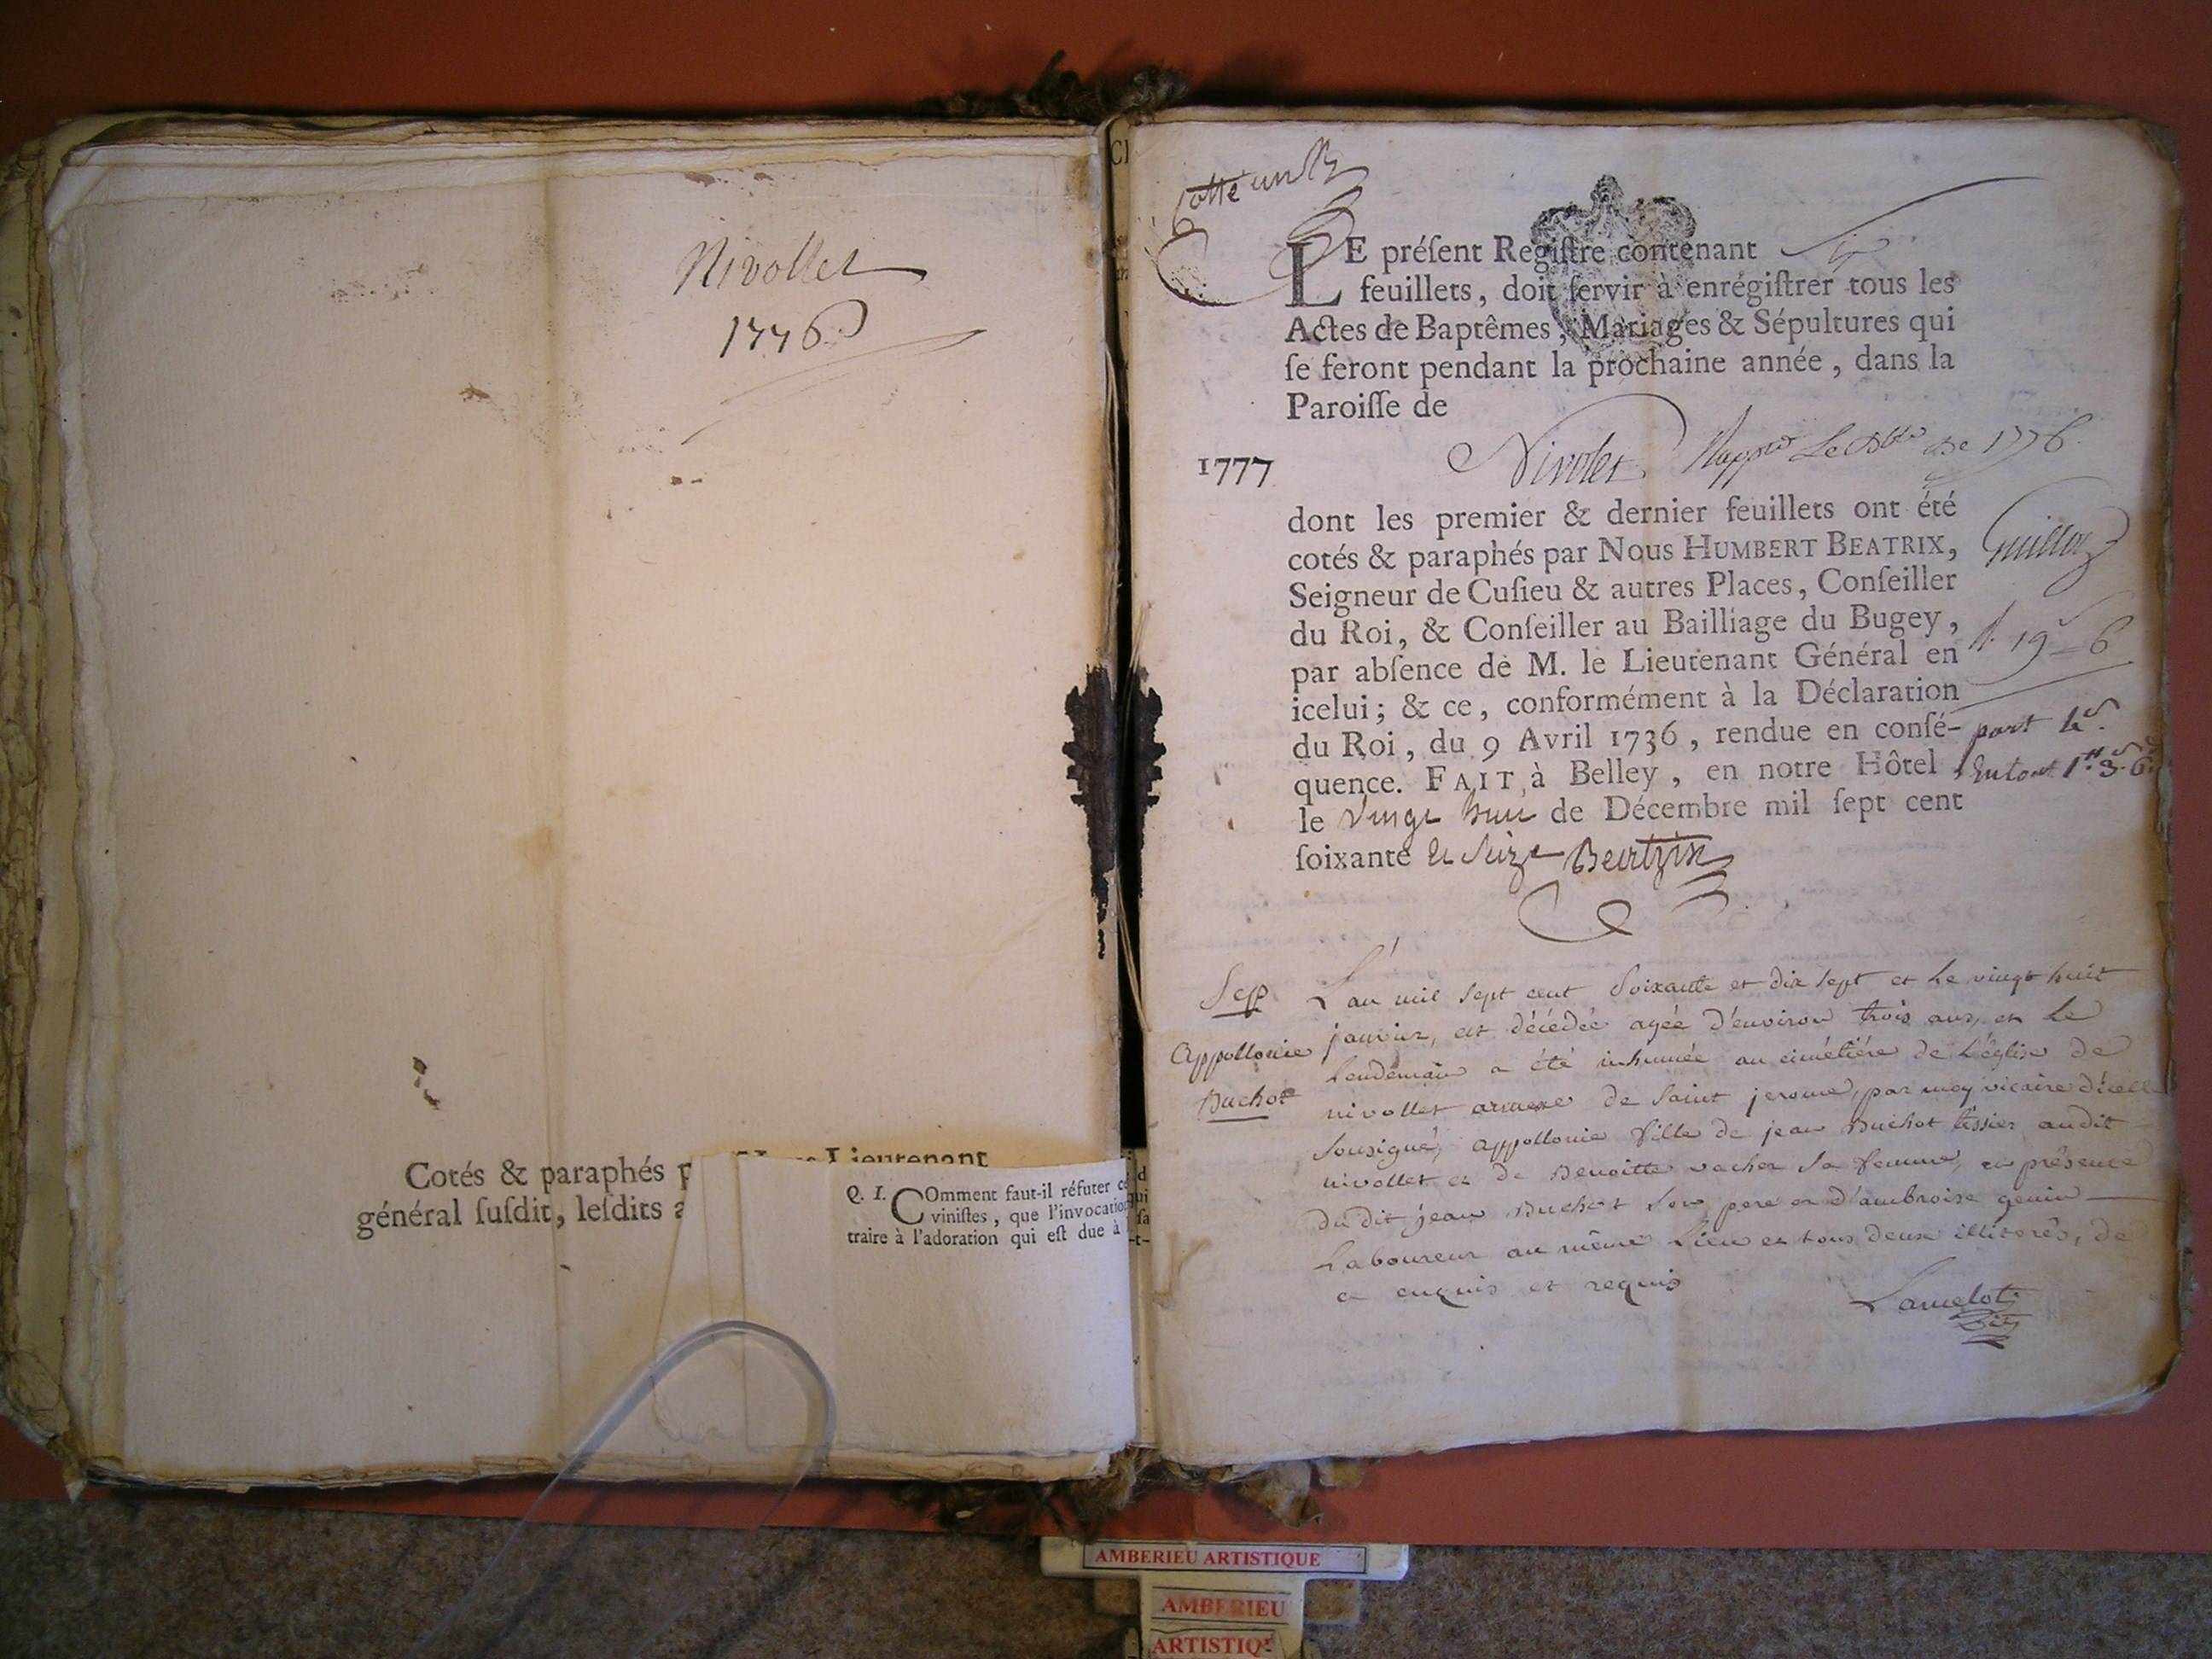 Nivollet
1776
Cotés & paraphés p
Lieutenant
général ſuſdit, leſdits a
Q. I. COmment faut-il réfuter ce
viniſtes, que l'invocation
traire à l'adoration qui eſt due à
Cotté un
LE préſent Regiſtre contenant Six
feuillets, doit ſervir à enrégiſtrer tous les
Actes de Baptêmes, Mariages & Sépultures qui
ſe feront pendant la prochaine année, dans la
Paroiſſe de
1777 Nivolet de 1776
dont les premier & dernier feuillets ont été
cotés & paraphés par Nous HUMBERT BEATRIX,
Seigneur de Cuſieu & autres Places, Conſeiller
du Roi, & Conſeiller au Bailliage du Bugey,
par abſence de M. le Lieutenant Général en
icelui; & ce, conformément à la Déclaration
du Roi, du 9 Avril 1736, rendue en conſé-
quence. FAIT à Belley, en notre Hôtel
le vingt huit de Décembre mil ſept cent
ſoixante et seize Beatrix
Guillon
19 6
part 4s
En tout 1tt 3s 6d
Sep
Appollonie
Duchot
L'an mil sept cent soixante et dix sept et le vingt huit
janvier, est décédée agée d'environ trois ans, et le
lendemain a été inhumée au cimétiére de l'église de
nivollet annexe de saint jerome, par moy vicaire d'icelle
sousigné, appollonie fille de jean Duchot tissier audit
nivollet et de Benoitte vacher sa femme, en présence
du dit jean Duchot son pere et d'ambroise genin
laboureur au même lieu et tous deux illiterés, de
ce enquis et requis
Lamelot
AMBERIEU ARTISTIQUE
AMBERIEU
ARTISTIQUE